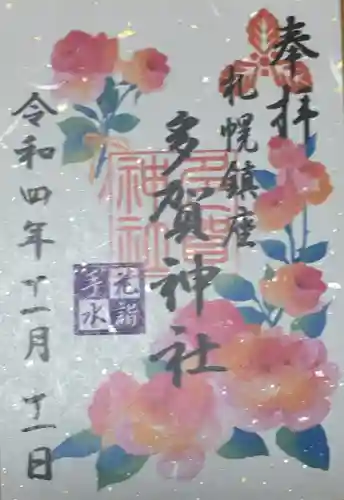 奉拝
札幌鎮座
多賀神社
多賀神社
花詣
手水
令和四年十一月十一日